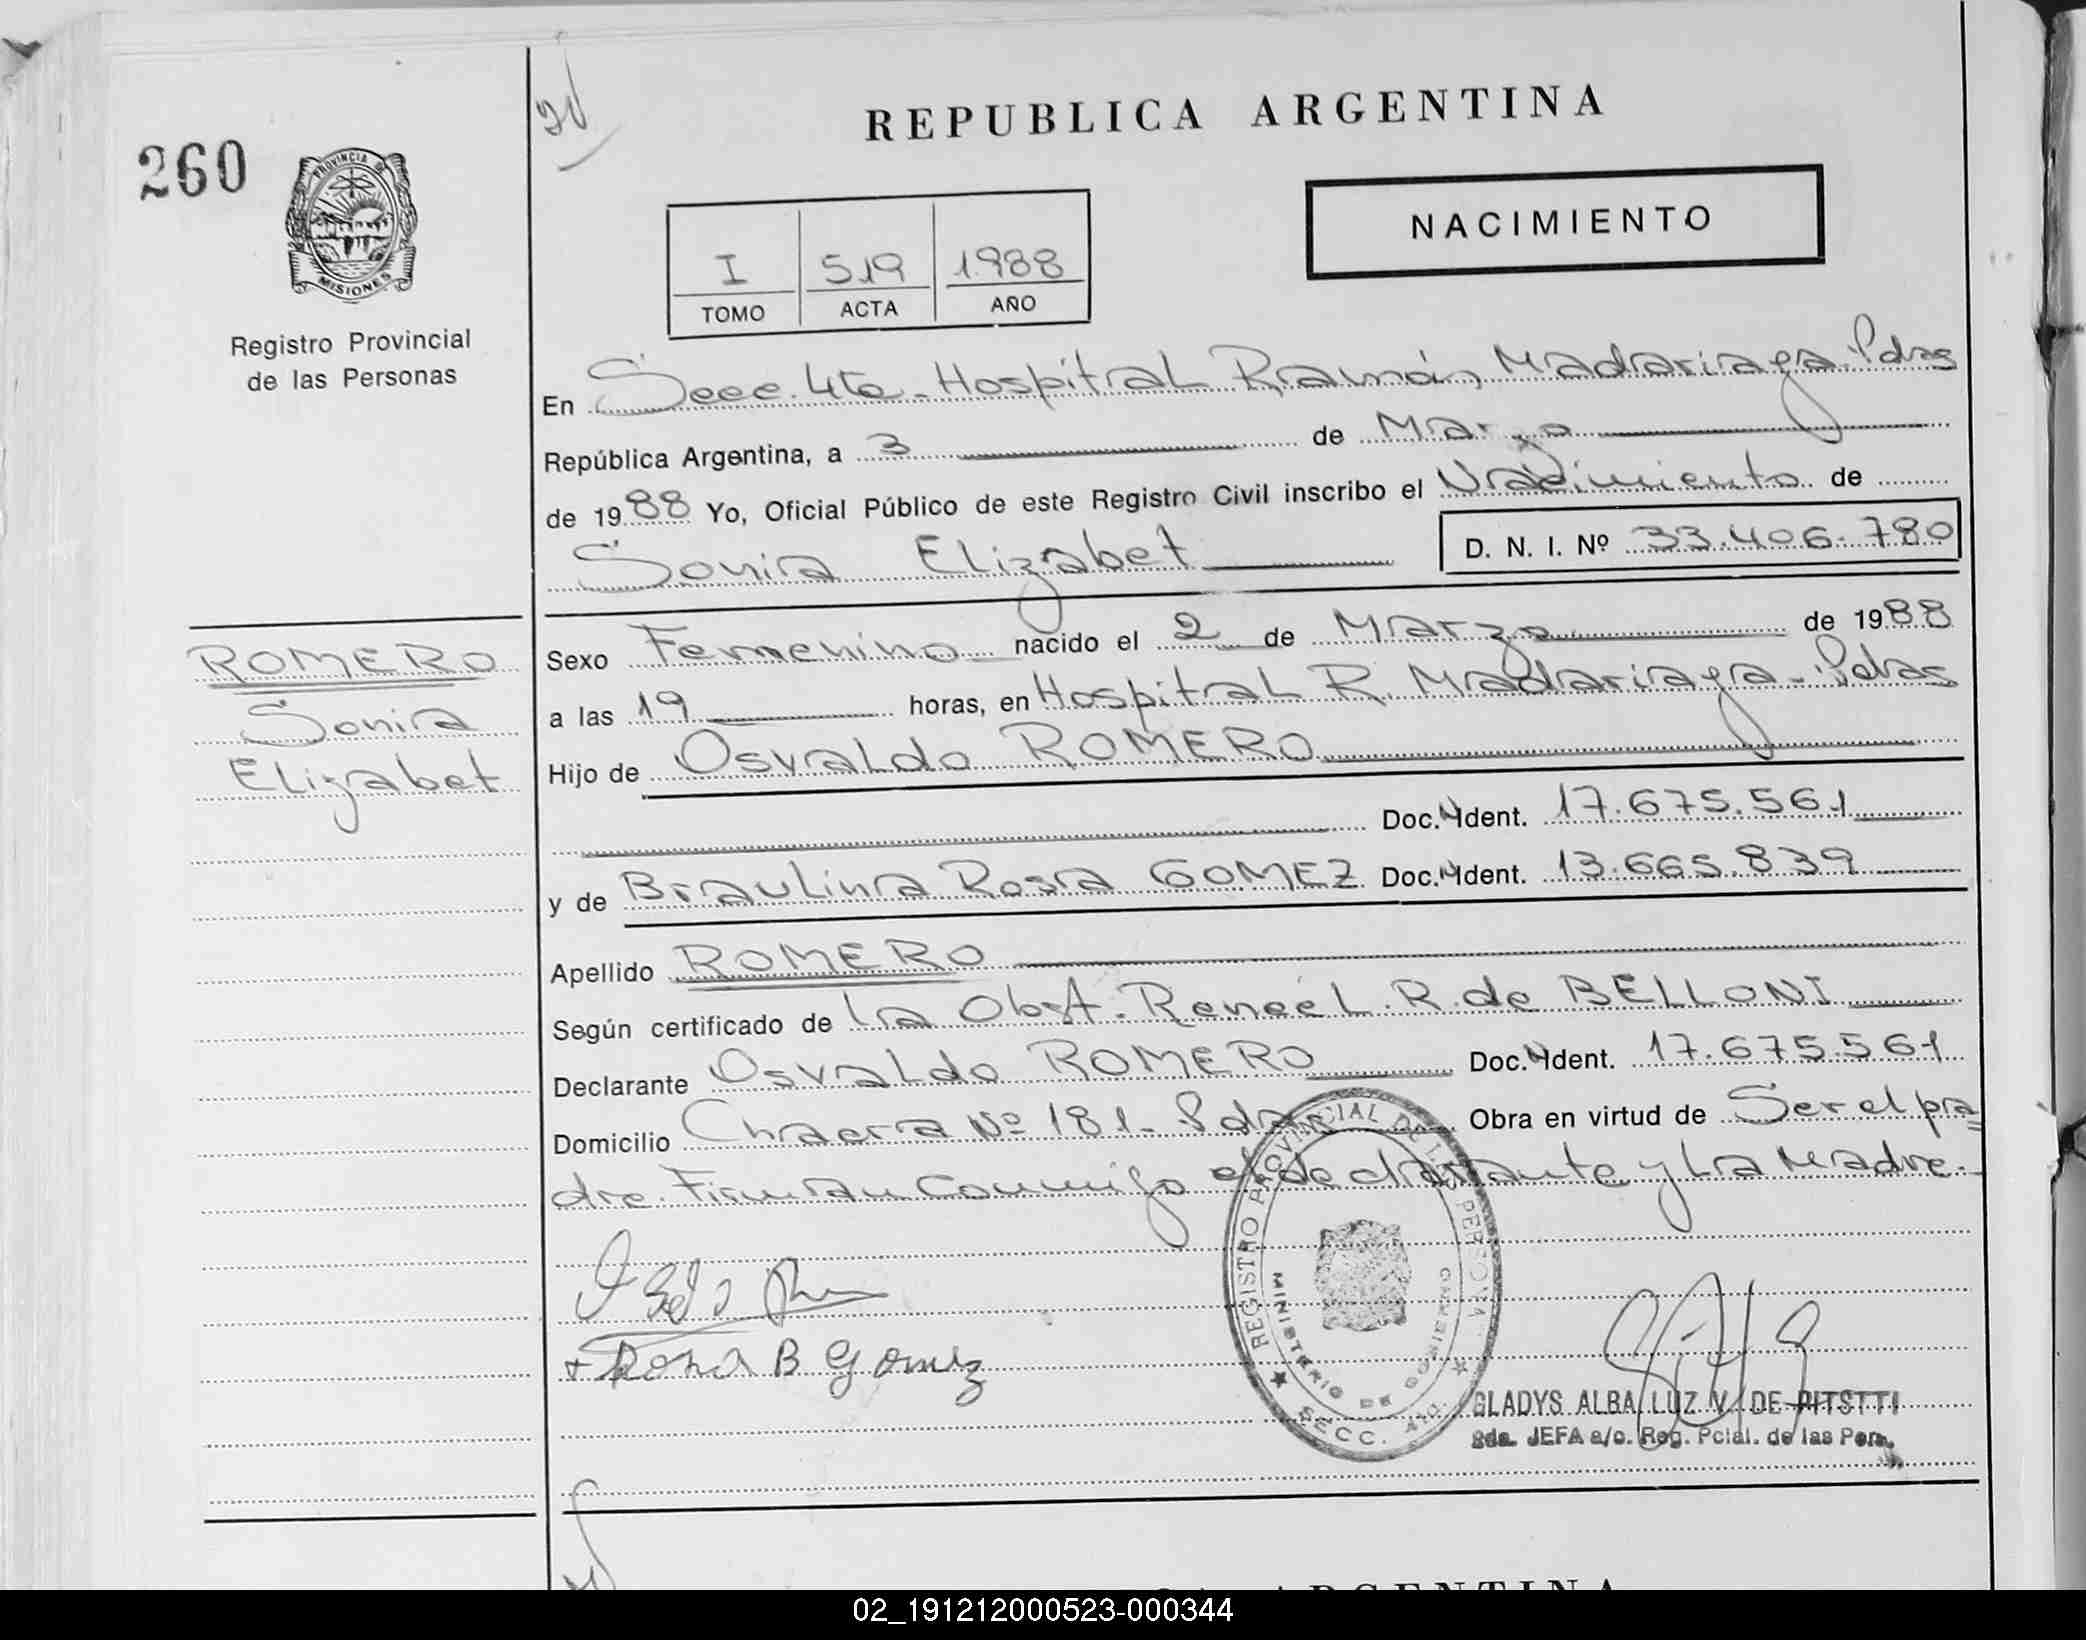 REPUBLICA ARGENTINA
260
PROVINCIA DE
MISIONES
Registro Provincial
de las Personas
NACIMIENTO
I 519 1988
TOMO ACTA AÑO
En Secc. 4ta. Hospital Ramón Madariaga - Pdas
República Argentina, a 3 de Marzo
de 1988 Yo, Oficial Público de este Registro Civil inscribo el Nacimiento de
Sonia Elizabet D. N. I. Nº 33.406.780
ROMERO
Sonia
Elizabet
Sexo Femenino nacido el 2 de Marzo de 1988
a las 19 horas, en Hospital R. Madariaga - Pdas
Hijo de Osvaldo ROMERO
Doc. Ident. 17.675.561
y de Braulina Rosa GOMEZ Doc. Ident. 13.665.839
Apellido ROMERO
Según certificado de la Obst. Reneé L. R. de BELLONI
Declarante Osvaldo ROMERO Doc. Ident. 17.675.561
Domicilio Chacra Nº 181 - Pdas Obra en virtud de Ser el pa=
dre. Firman Conmigo el declarante y la Madre.-
Rosa B Gomez
REGISTRO PROVINCIAL DE LAS PERSONAS
MINISTERIO DE GOBIERNO
SECC. 4TO
GLADYS ALBA LUZ V. DE PITSTTI
2da. JEFA a/c. Reg. Pcial. de las Pers.
ARGENTINA
02_191212000523-000344